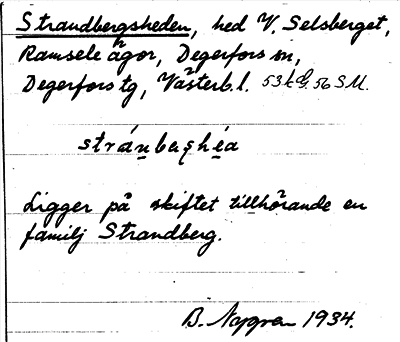 Strandbergsheden, hed V. Selsberget,
Ramsele ägor, Degerfors sn,
Degerfors tg, Västerb. l. 53 k G. 56 S.M.
stránbaşhéa
Ligger på skiftet tillhörande en
familj Strandberg.
B. Nygren 1934.